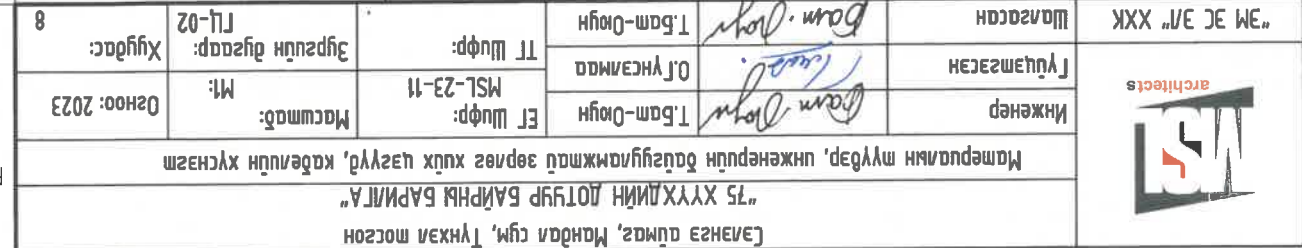 MSL
architects
"ЭМ ЭС ЭЛ" ХХК
Сэлэнгэ аймаг, Мандал сум, Түнхэл тосгон
"75 ХҮҮХДИЙН ДОТУУР БАЙРНЫ БАРИЛГА"
Материалын түүвэр, инженерийн байгууламжтай зөрлөг хийх цэгүүд, кабелийн хүснэгт
Инженер Т.Бат-Оюун ЕГ Шифр: MSL-23-11 Масштаб: М1: Огноо: 2023
Гүйцэтгэсэн О.Гүнсэлмаа
Шалгасан Т.Бат-Оюун ТГ Шифр: Зургийн дугаар: ГЦ-02 Хуудас: 8